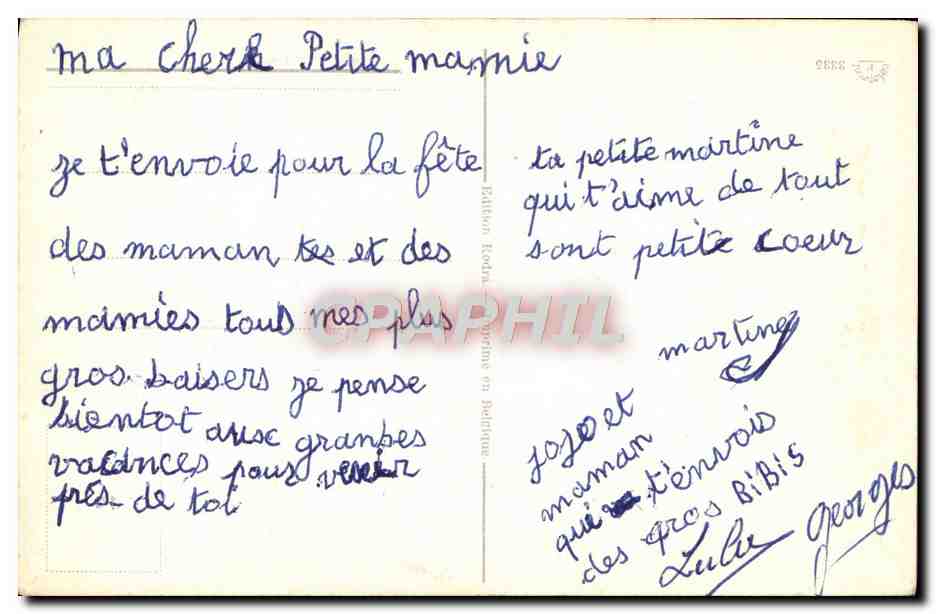 ma cher Petite mamie
je t'envoie pour la fête
des maman tes et des
mamies tous mes plus
gros baisers je pense
bientot aux grandes
vacances pour venir
près de toi
ta petite martine
qui t'aime de tout
sont petite coeur
martine
jojo et
maman
qui t'envois
des gros BiBiS
Lulu georges
Edition Kodra
Imprimé en Belgique
3335
CPAPHIL